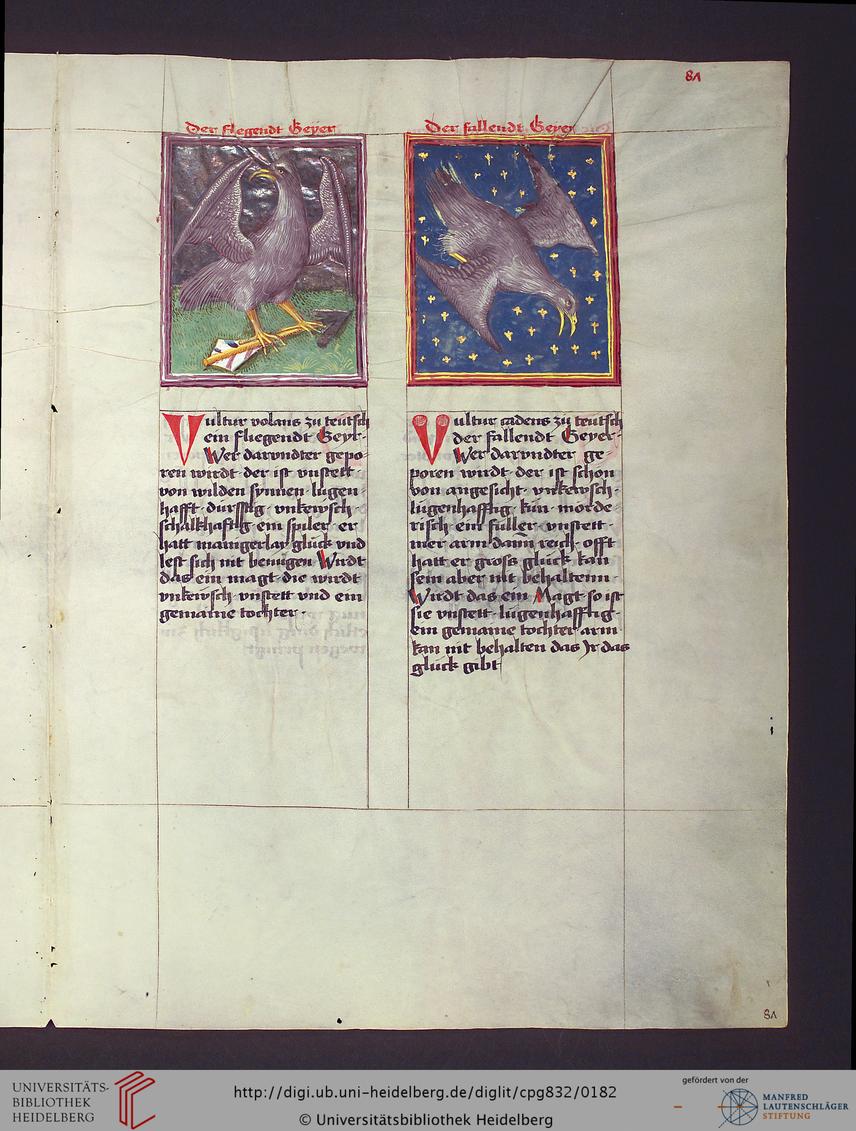 81
Der flegendt Geyer
Vultur volans zu teutsch
ein fliegendt Geyr·
Wer darundter gepo-
ren wirdt· der ist vnstett·
von wilden synnen· lugen-
hafft· dursstig· vnkewsch·
schalkhafftig· ein spiler· er
hatt manigerlay glück vnd
lest sich nit benügen· Wirdt
das ein magt· die wirdt
vnkewsch· vnstett vnd ein
gemaine tochter·
Der fallendt Geyer
Vultur cadens zu teutsch
der fallendt Geyer·
Wer darundter ge
poren wirdt· der ist schon
von angesicht· vnkewsch·
lugenhafftig· kün· mörde-
risch· ein füller· vnstett·
mer arm dann reich· offt
hatt er gross glück· kan
sein aber nit behaltenn·
Wirdt das ein Magt· so ist
sie vnstett· lugenhafftig·
ein gemaine tochter· arm·
kan nit behalten das Jr das
glück gibt
81
UNIVERSITÄTS-
BIBLIOTHEK
HEIDELBERG
http://digi.ub.uni-heidelberg.de/diglit/cpg832/0182
© Universitätsbibliothek Heidelberg
gefördert von der
MANFRED
LAUTENSCHLÄGER
STIFTUNG